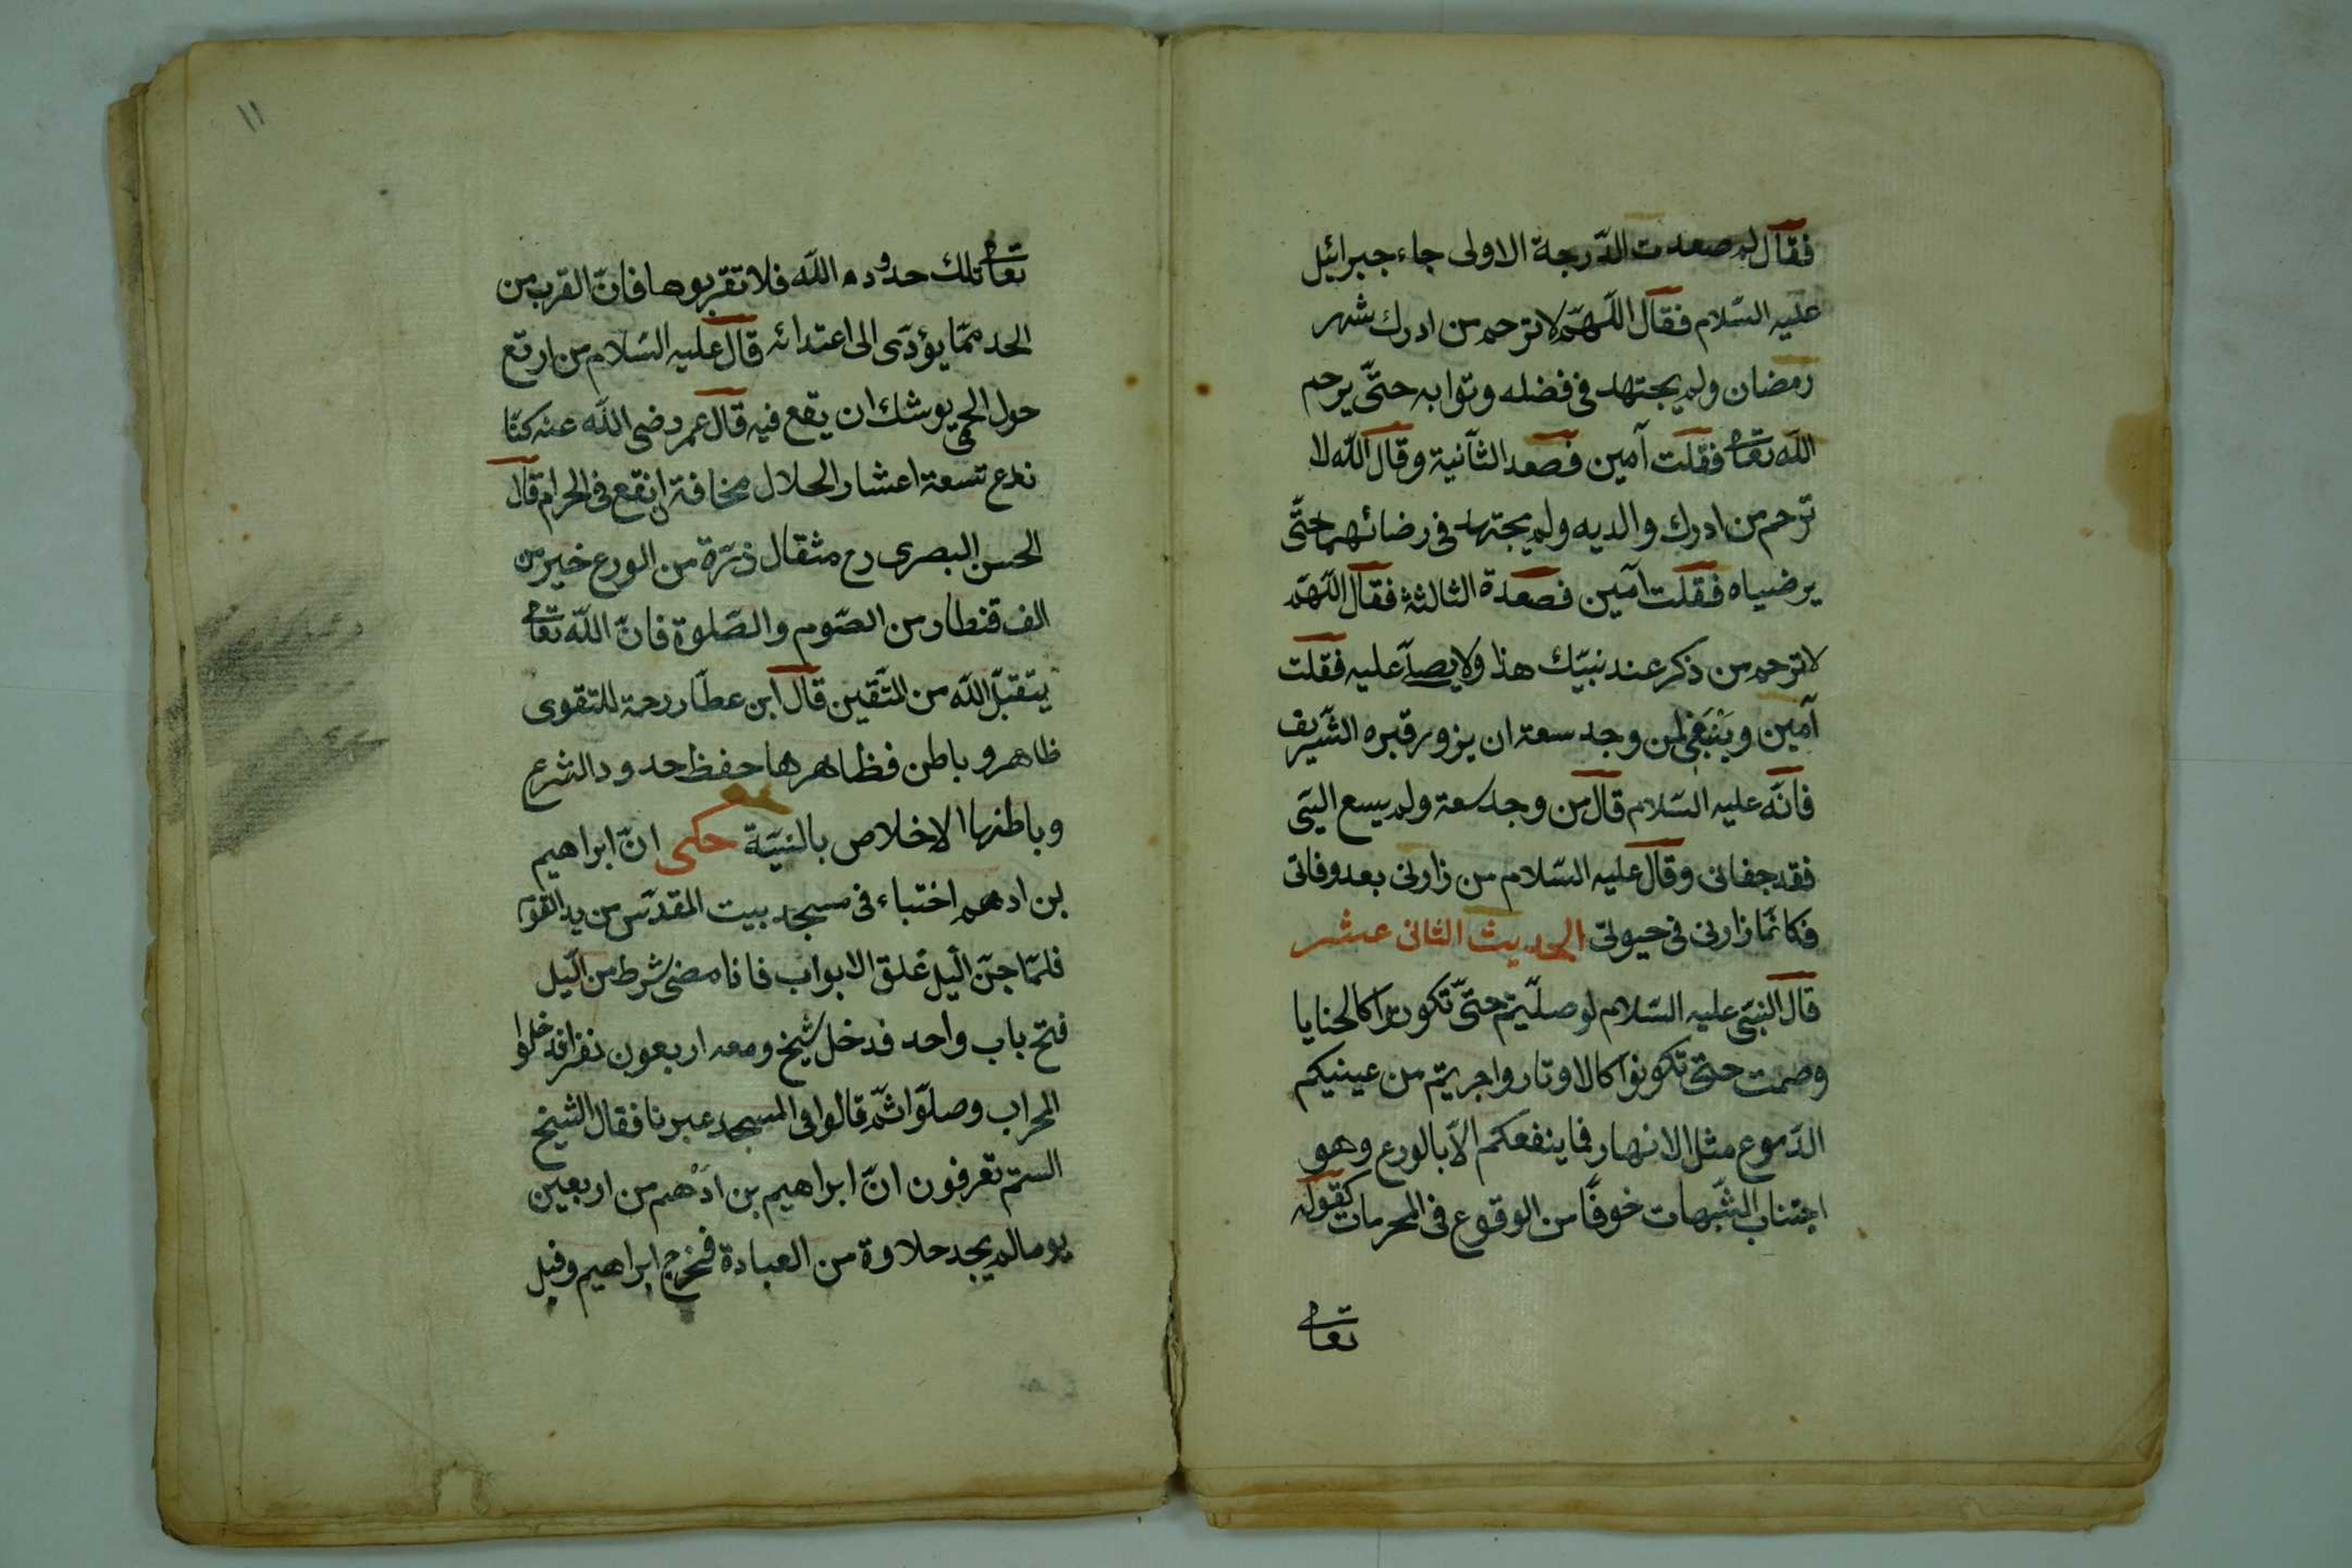 فقال لم صعدت الدّرجة الاولى جاء جبرائيل
عليه السّلام فقال اللّهمّ لا ترحم من ادرك شهر
رمضان ولم يجتهد فى فضله وثوابه حتّى يرحم
اللّه تعا فقلت آمين فصعد الثّانية وقال اللّه لا
ترحم من ادرك والديه ولم يجتهد فى رضائهم حتّى
يرضياه فقلت آمين فصعدة الثالثة فقال اللّهمّ
لا ترحم من ذكر عند نبيّك هذا ولا يصلّ عليه فقلت
آمين وينبغى لمن وجد سعة ان يزور قبره الشّريف
فانّه عليه السّلام قال من وجد سعة ولم يسع اليّ
فقد جفانى وقال عليه السّلام من زارنى بعد وفاتى
فكانّما زارنى فى حيوتى الحديث الثانى عشر
قال النّبىّ عليه السّلام لو صلّيتم حتّى تكونوا كالحنايا
وصمت حتّى تكونوا كالاوتار واجريتم من عينيكم
الدّموع مثل الانهار فما ينفعكم الّا بالورع وهو
اجتناب الشّبهات خوفًا من الوقوع فى المحرمات كقوله
تعا
١١
تعا تلك حدود اللّه فلا تقربوها فانّ القرب من
الحد ممّا يؤدّى الى اعتدائه قال عليه السّلام من ارتع
حول الحمى يوشك ان يقع فيه قال عمر رضى اللّه عنه كنّا
ندع تسعة اعشار الحلال مخافة ان نقع فى الحرام قال
الحسن البصرى رح مثقال ذرّة من الورع خير من
الف قنطار من الصّوم والصّلوة فانّ اللّه تعا
يتقبّل اللّه من المتّقين قال ابن عطّار رحمة للتقوى
ظاهر و باطن فظاهرها حفظ حدود الشرع
وباطنها الاخلاص بالنيّة حكى انّ ابراهيم
بن ادهم اختباء فى مسجد بيت المقدّس من يد القوم
فلمّا جنّ الّيل غلق الابواب فاذا مضى شرط من الّيل
فتح باب واحد فدخل شيخ ومعه اربعون نفرا فدخلوا
المحراب وصلّوا ثمّ قالوا فى المسجد عبرنا فقال الشيخ
الستم تعرفون انّ ابراهيم بن ادهم من اربعين
يوما لم يجد حلاوة من العبادة فخرج ابراهيم وقبل